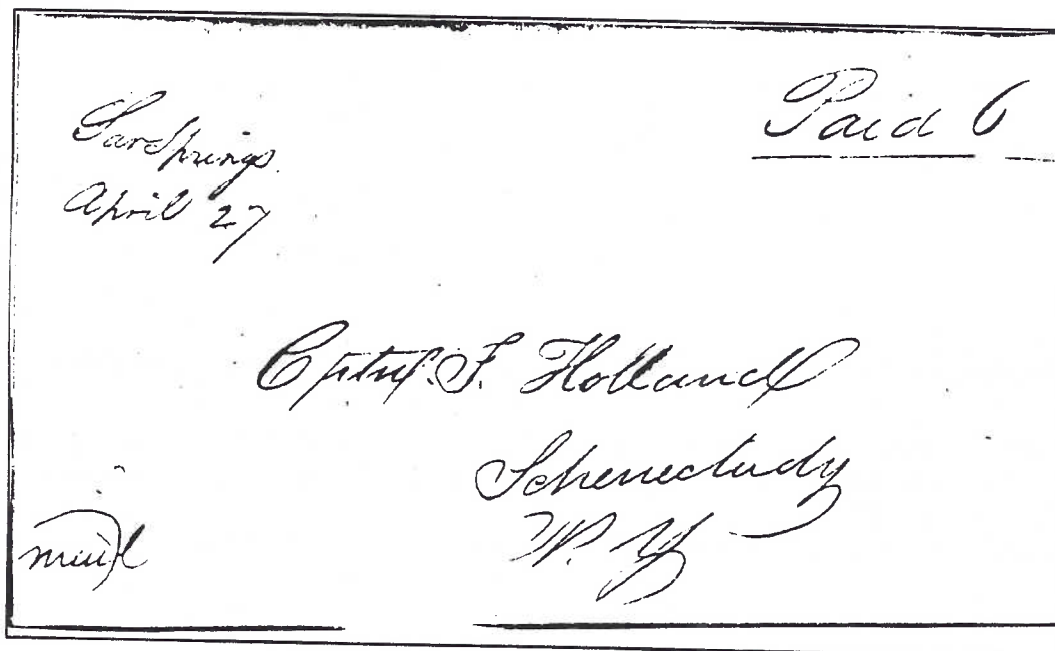 SarSprings
April 27
Paid 6
F. Holland
Schenectady
N. Y
mail